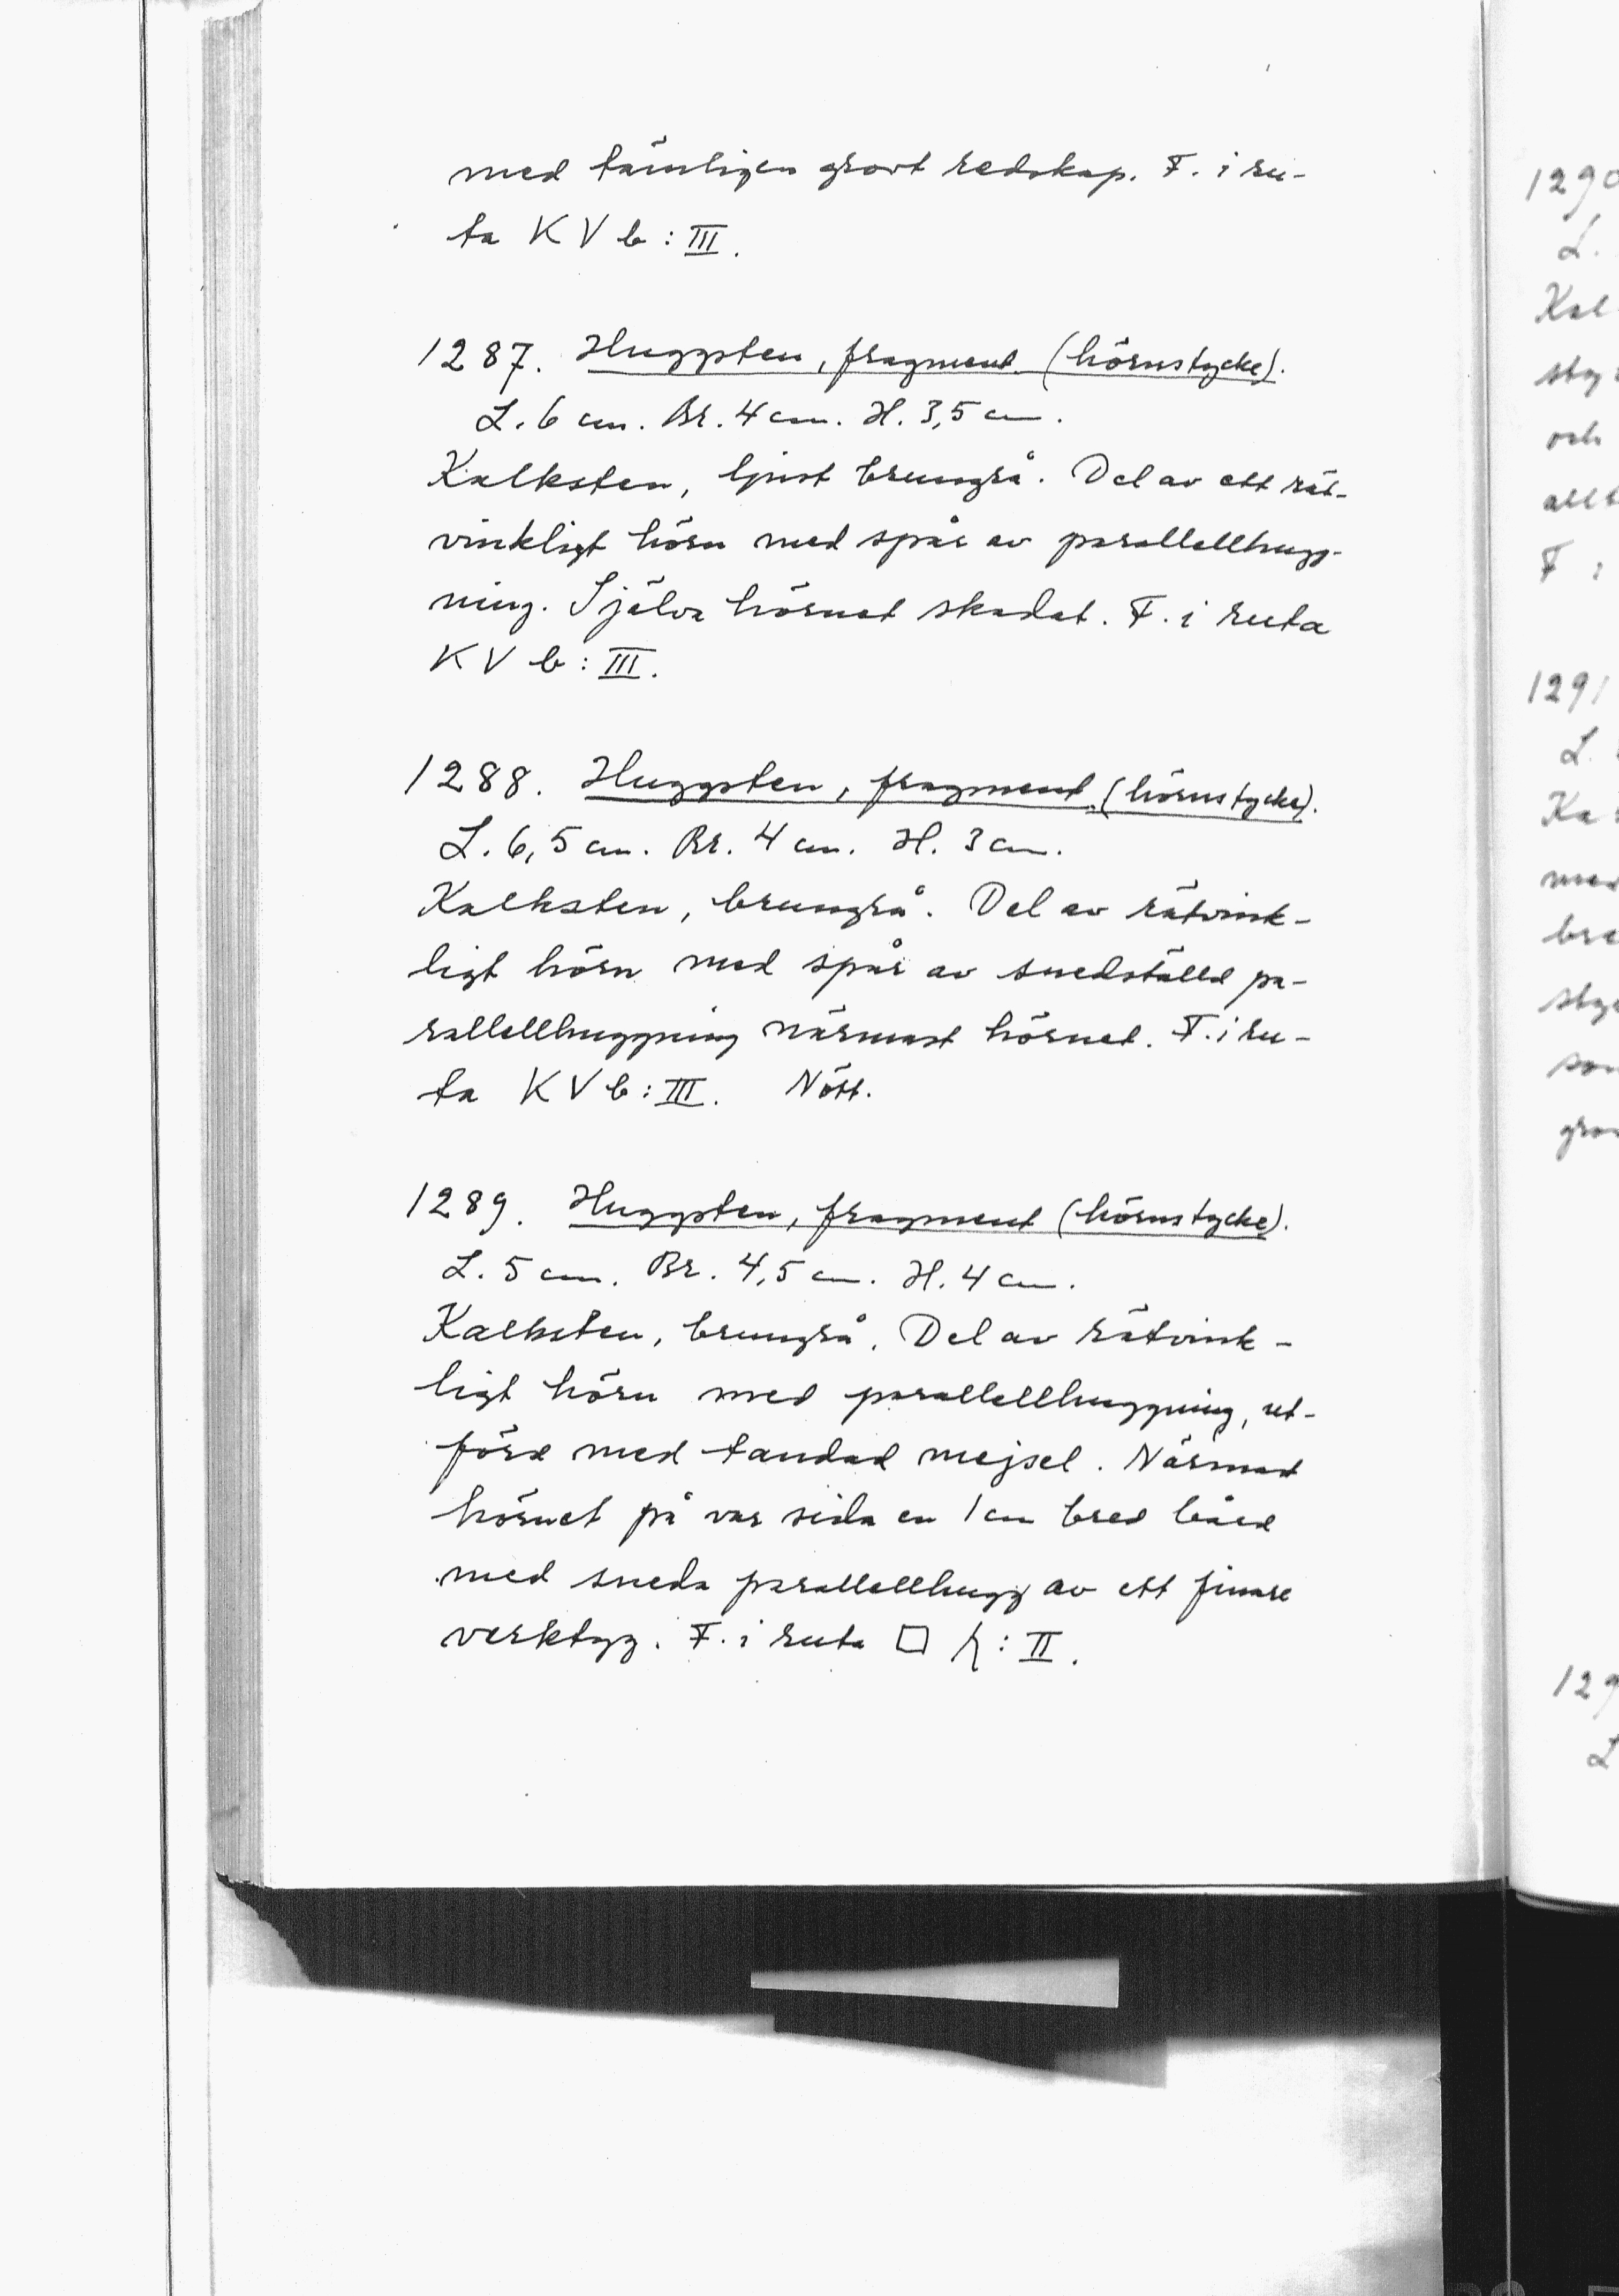 med tämligen grovt redskap. F. i ru-
ta K V b : III.
1287. Huggsten, fragment (hörnstycke).
L. 6 cm. Br. 4 cm. H. 3,5 cm.
Kalksten, ljust brungrå. Del av ett rät-
vinkligt hörn med spår av parallellhugg-
ning. Själva hörnet skadat. F. i ruta
K V b : III.
1288. Huggsten, fragment (hörnstycke).
L. 6,5 cm. Br. 4 cm. H. 3 cm.
Kalksten, brungrå. Del av rätvink-
ligt hörn med spår av snedställd pa-
rallellhuggning närmast hörnet. F. i ru-
ta K V b : III. Nött.
1289. Huggsten, fragment (hörnstycke).
L. 5 cm. Br. 4,5 cm. H. 4 cm.
Kalksten, brungrå. Del av rätvink-
ligt hörn med parallellhuggning, ut-
förd med tandad mejsel. Närmast
hörnet på var sida en 1 cm bred bård
med sneda parallellhugg av ett finare
verktyg. F. i ruta □ : II.
1290
L.
Kal
och
F
1291
L.
129
L